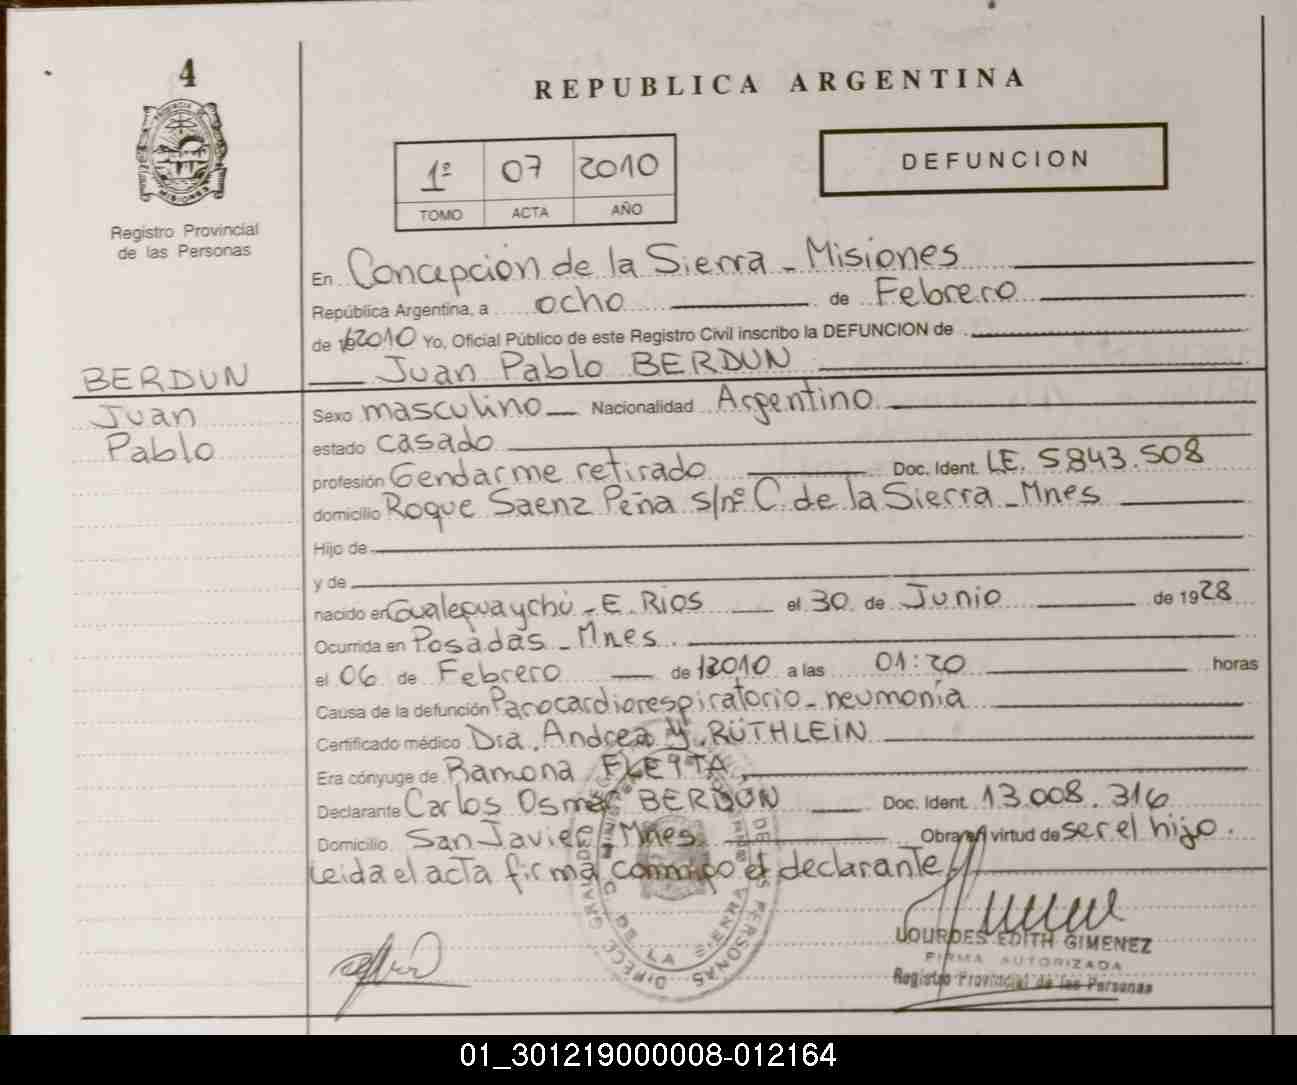 4
REPUBLICA ARGENTINA
1º 07 2010
TOMO ACTA AÑO
DEFUNCION
Registro Provincial
de las Personas
En Concepción de la Sierra - Misiones
República Argentina, a ocho de Febrero
de 2010 Yo, Oficial Público de este Registro Civil inscribo la DEFUNCION de
BERDUN Juan Pablo BERDUN
Juan
Pablo
Sexo masculino Nacionalidad Argentino
estado casado
profesión Gendarme retirado Doc. Ident. LE. 5.843.508
domicilio Roque Saenz Peña s/nº C. de la Sierra - Mnes
Hijo de
y de
nacido en Gualeguaychú - E. Rios el 30 de Junio de 1928
Ocurrida en Posadas - Mnes
el 06 de Febrero de 2010 a las 01:20 horas
Causa de la defunción Parocardiorespiratorio - neumonía
Certificado médico Dra. Andrea Y. RÜTHLEIN
Era cónyuge de Ramona FLEITA
Declarante Carlos Osmar BERDUN Doc. Ident. 13.008.316
Domicilio San Javier, Mnes Obra en virtud de ser el hijo.
Leida el acta firma conmigo el declarante
LOURDES EDITH GIMENEZ
FIRMA AUTORIZADA
Registro Provincial de las Personas
01_301219000008-012164